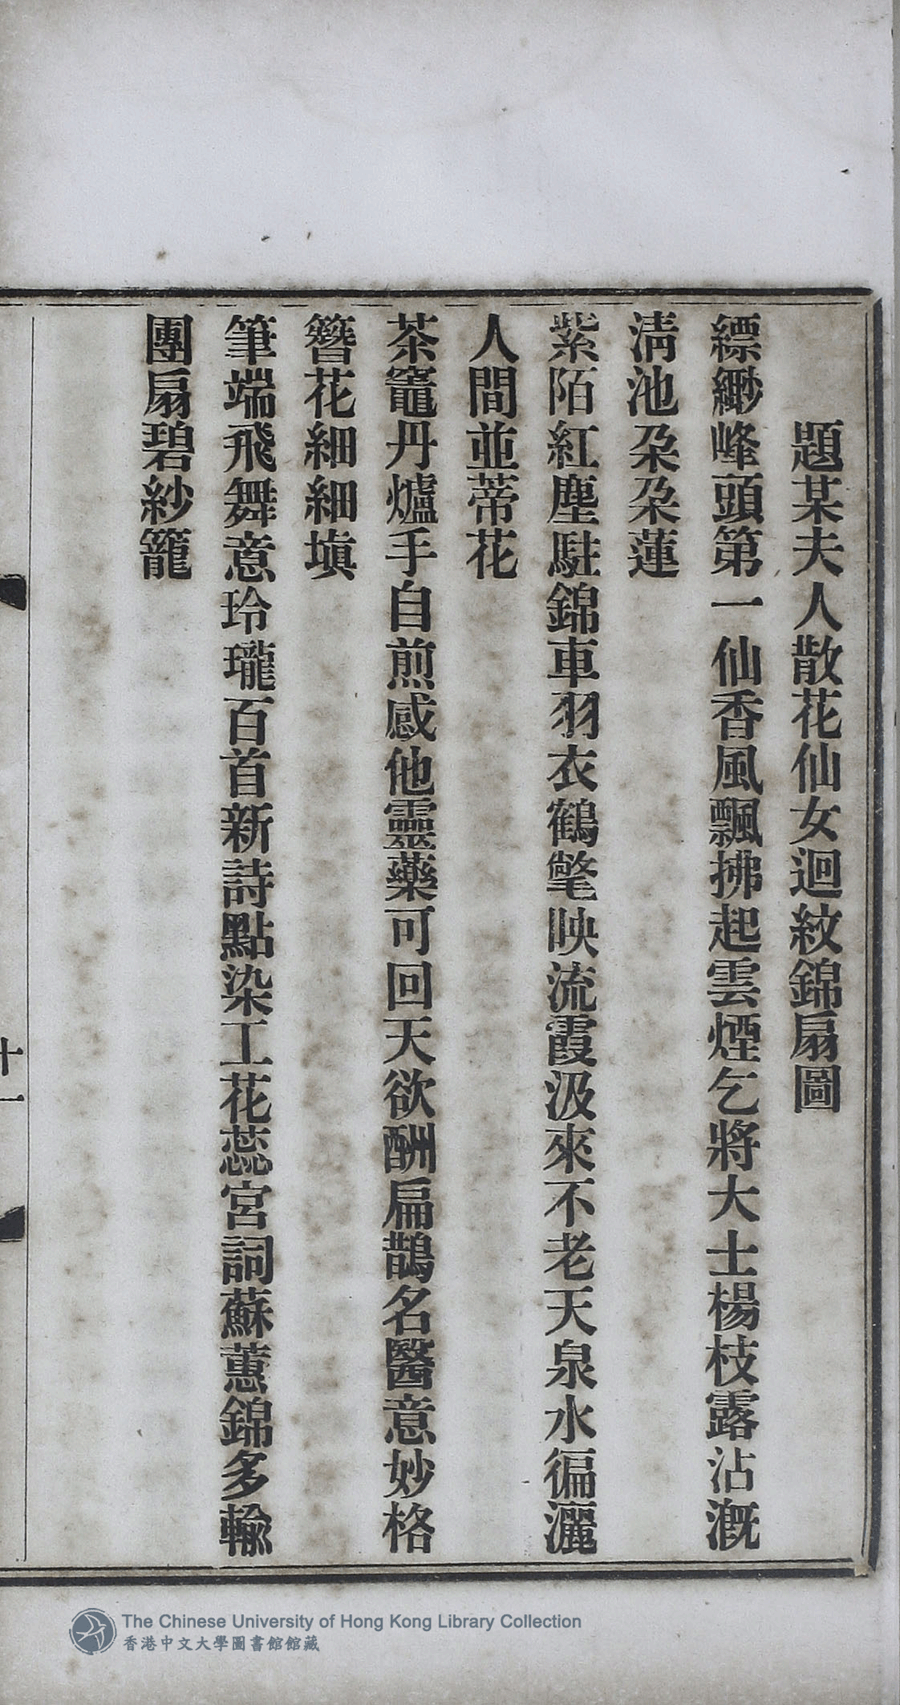 題某夫人散花仙女迴紋錦扇圖
縹緲峰頭第一仙香風飄拂起雲煙乞將大士楊枝露沾漑
淸池朶朶蓮
紫陌紅塵駐錦車羽衣鶴氅映流霞汲來不老天泉水徧灑
人間並蒂花
茶竈丹爐手自煎感他靈藥可回天欲酬扁鵲名醫意妙格
簪花細細塡
筆端飛舞意玲瓏百首新詩點染工花蕊宮詞蘇蕙錦多輸
團扇碧紗籠
十一
The Chinese University of Hong Kong Library Collection
香港中文大學圖書館館藏